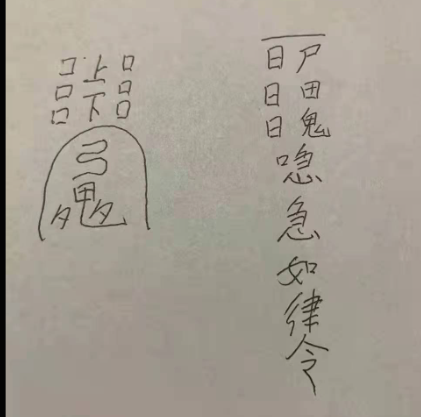 口上口
口下口
口口
弓
夕鬼夕
日尸
日田
日鬼
喼急如律令